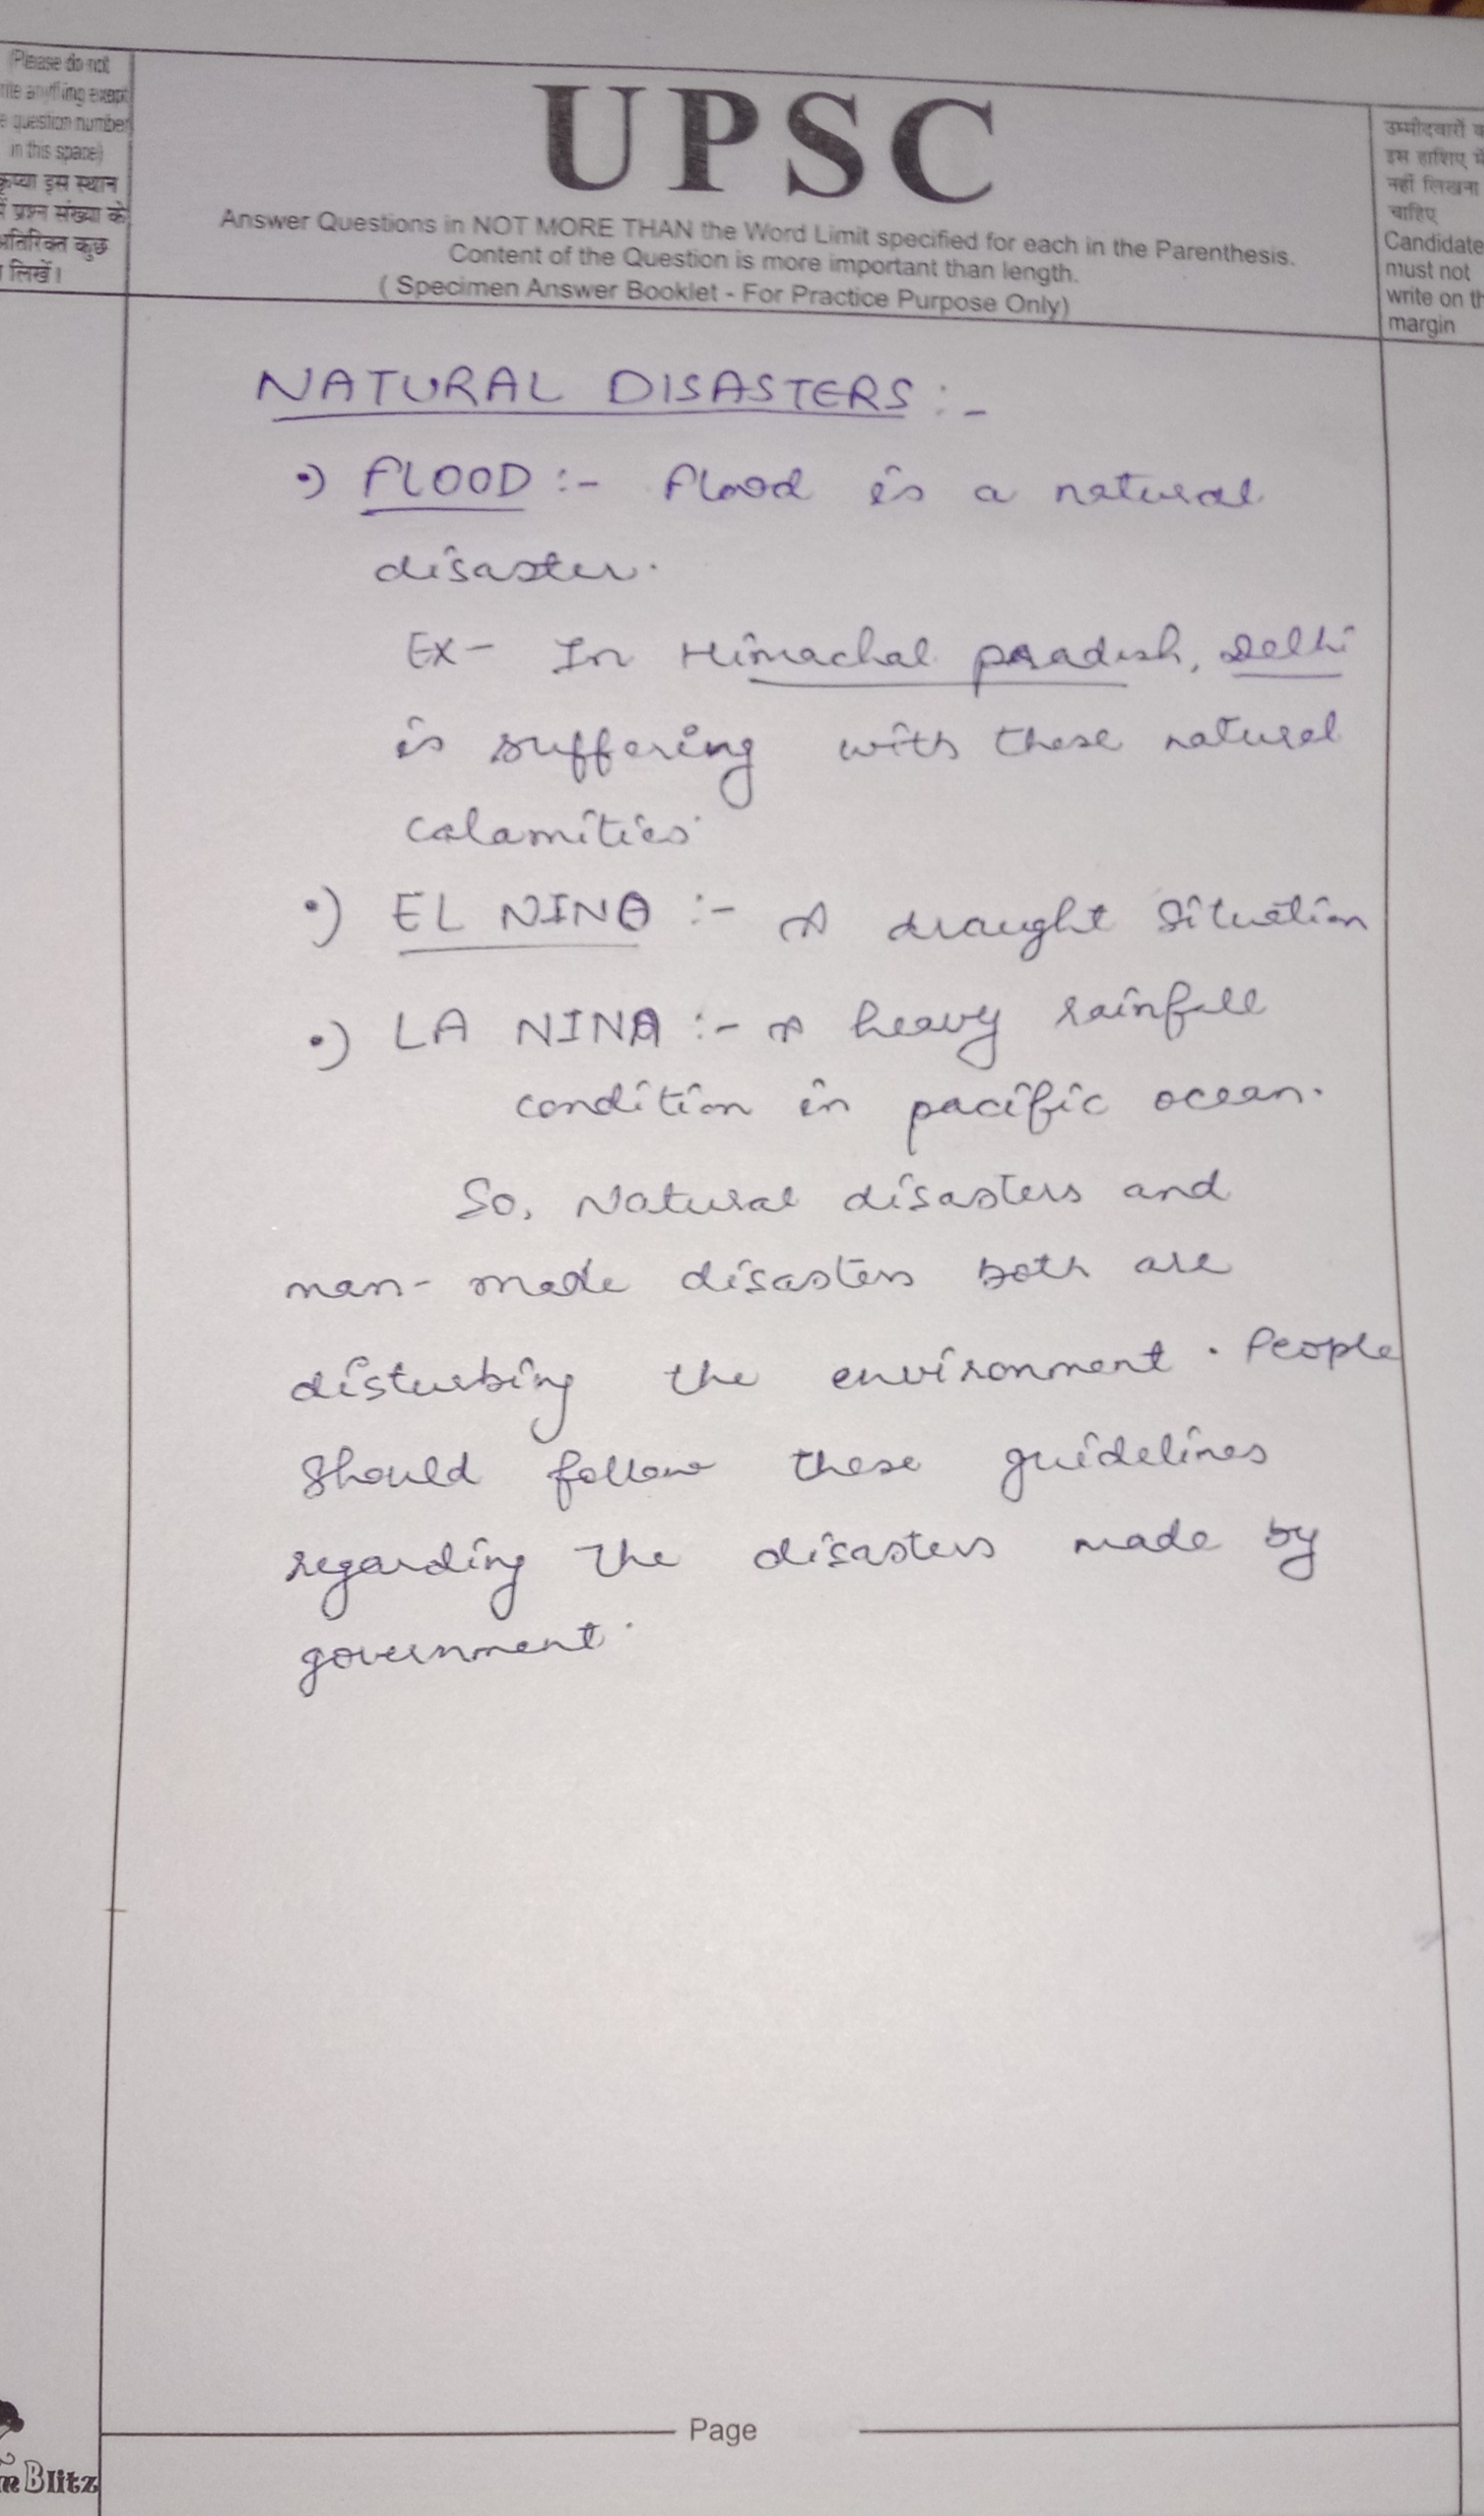 (Please do not
rite anything exept
e question number
in this space)
कृप्या इस स्थान
में प्रश्न संख्या के
अतिरिक्त कुछ
न लिखें।
UPSC
Answer Questions in NOT MORE THAN the Word Limit specified for each in the Parenthesis.
Content of the Question is more important than length.
( Specimen Answer Booklet - For Practice Purpose Only)
उम्मीदवारों क
इस हाशिए में
नहीं लिखना
चाहिए
Candidate
must not
write on th
margin
NATURAL DISASTERS :-
•) FLOOD :- Flood is a natural
disaster.
Ex- In Himachal pradesh, Delhi
is suffering with these natural
calamities.
•) EL NINO :- A draught situation
•) LA NINA :- A heavy rainfall
condition in pacific ocean.
So, Natural disasters and
man-made disasters both are
disturbing the environment. People
should follow these guidelines
regarding the disasters made by
government.
Page
Blitz